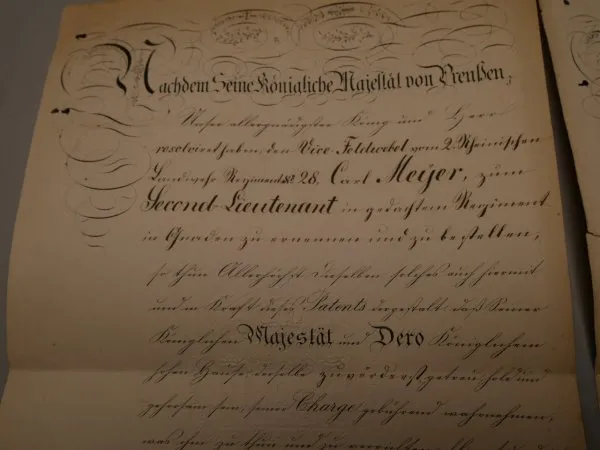 Nachdem Seine Königliche Majestät von Preußen,
Unser allergnädigster König und Herr
resolviret haben, den Vice-Feldwebel vom 2. Rheinischen
Landwehr Regiment № 28, Carl Meÿer, zum
Second-Lieutenant in gedachtem Regiment
in Gnaden zu ernennen und zu bestellen,
so thun Allerhöchst Dieselben solches auch hiermit
und in Kraft dieses Patents dergestalt, daß Seiner
Königlichen Majestät und Dero Königlichem
hohen Hause derselbe zuvörderst getreu, hold und
gehorsam sein, seine Charge gebührend wahrnehmen,
was ihm zu thun und zu verrichten